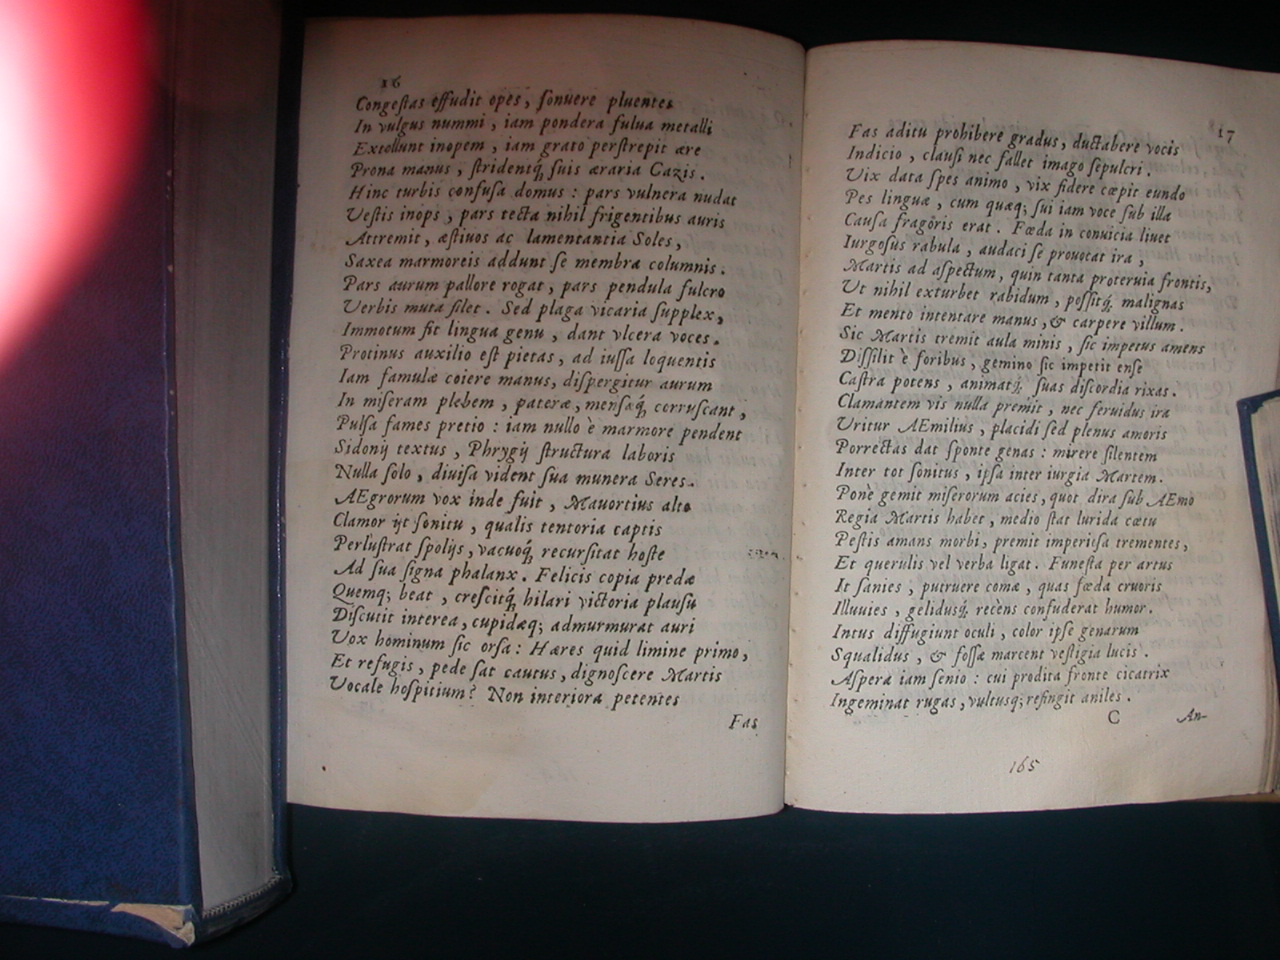 16
Congeſtas effudit opes, ſonuere pluentes
In vulgus nummi, iam pondera fulua metalli
Extollunt inopem, iam grato perſtrepit ære
Prona manus, ſtridentq́; ſuis æraria Cazis.
Hinc turbis confuſa domus: pars vulnera nudat
Veſtis inops, pars tecta nihil frigentibus auris
Attremit, æſtiuos ac lamentantia Soles,
Saxea marmoreis addunt ſe membra columnis.
Pars aurum pallore rogat, pars pendula fulcro
Verbis muta ſilet. Sed plaga vicaria ſupplex,
Immotum fit lingua genu, dant vlcera voces.
Protinus auxilio eſt pietas, ad iuſſa loquentis
Iam famulæ coiere manus, diſpergitur aurum
In miſeram plebem, pateræ, menſæq́; corruſcant,
Pulſa fames pretio: iam nullo è marmore pendent
Sidonij textus, Phrygij ſtructura laboris
Nulla ſolo, diuiſa vident ſua munera Seres.
AEgrorum vox inde fuit, Mauortius alto
Clamor vt ſonitu, qualis tentoria captis
Perluſtrat ſpolijs, vacuoq́; recurſitat hoſte
Ad ſua ſigna phalanx. Felicis copia predæ
Quemq; beat, creſcitq́; hilari victoria plauſu
Diſcutit interea, cupidæq; admurmurat auri
Vox hominum ſic orſa: Hæres quid limine primo,
Et refugis, pede ſat cautus, dignoſcere Martis
Vocale hoſpitium? Non interiora petentes
Fas
17
Fas aditu prohibere gradus, ductabere vocis
Indicio, clauſi nec fallet imago ſepulcri.
Vix data ſpes animo, vix fidere cœpit eundo
Pes linguæ, cum quæq; ſui iam voce ſub illa
Cauſa fragôris erat. Fœda in conuicia liuet
Iurgoſus rabula, audaci ſe prouocat ira,
Martis ad aſpectum, quin tanta proteruia frontis,
Vt nihil exturbet rabidum, poſſitq́; malignas
Et mento intentare manus, & carpere villum.
Sic Martis tremit aula minis, ſic impetus amens
Diſſilit è foribus, gemino ſic impetit enſe
Caſtra potens, animatq́; ſuas diſcordia rixas.
Clamantem vis nulla premit, nec feruidus ira
Vritur AEmilius, placidi ſed plenus amoris
Porrectas dat ſponte genas: mirere ſilentem
Inter tot ſonitus, ipſa inter iurgia Martem.
Ponè gemit miſerorum acies, quot dira ſub AEmo
Regia Martis habet, medio ſtat lurida cœtu
Peſtis amans morbi, premit imperioſa trementes,
Et querulis vel verba ligat. Funeſta per artus
It ſanies, putruere comæ, quas fœda cruoris
Illuuies, gelidusq́; recèns confuderat humor.
Intus diffugiunt oculi, color ipſe genarum
Squalidus, & foſſæ marcent veſtigia lucis.
Aſpera iam ſenio: cui prodita fronte cicatrix
Ingeminat rugas, vultusq; refingit aniles.
C An-
165